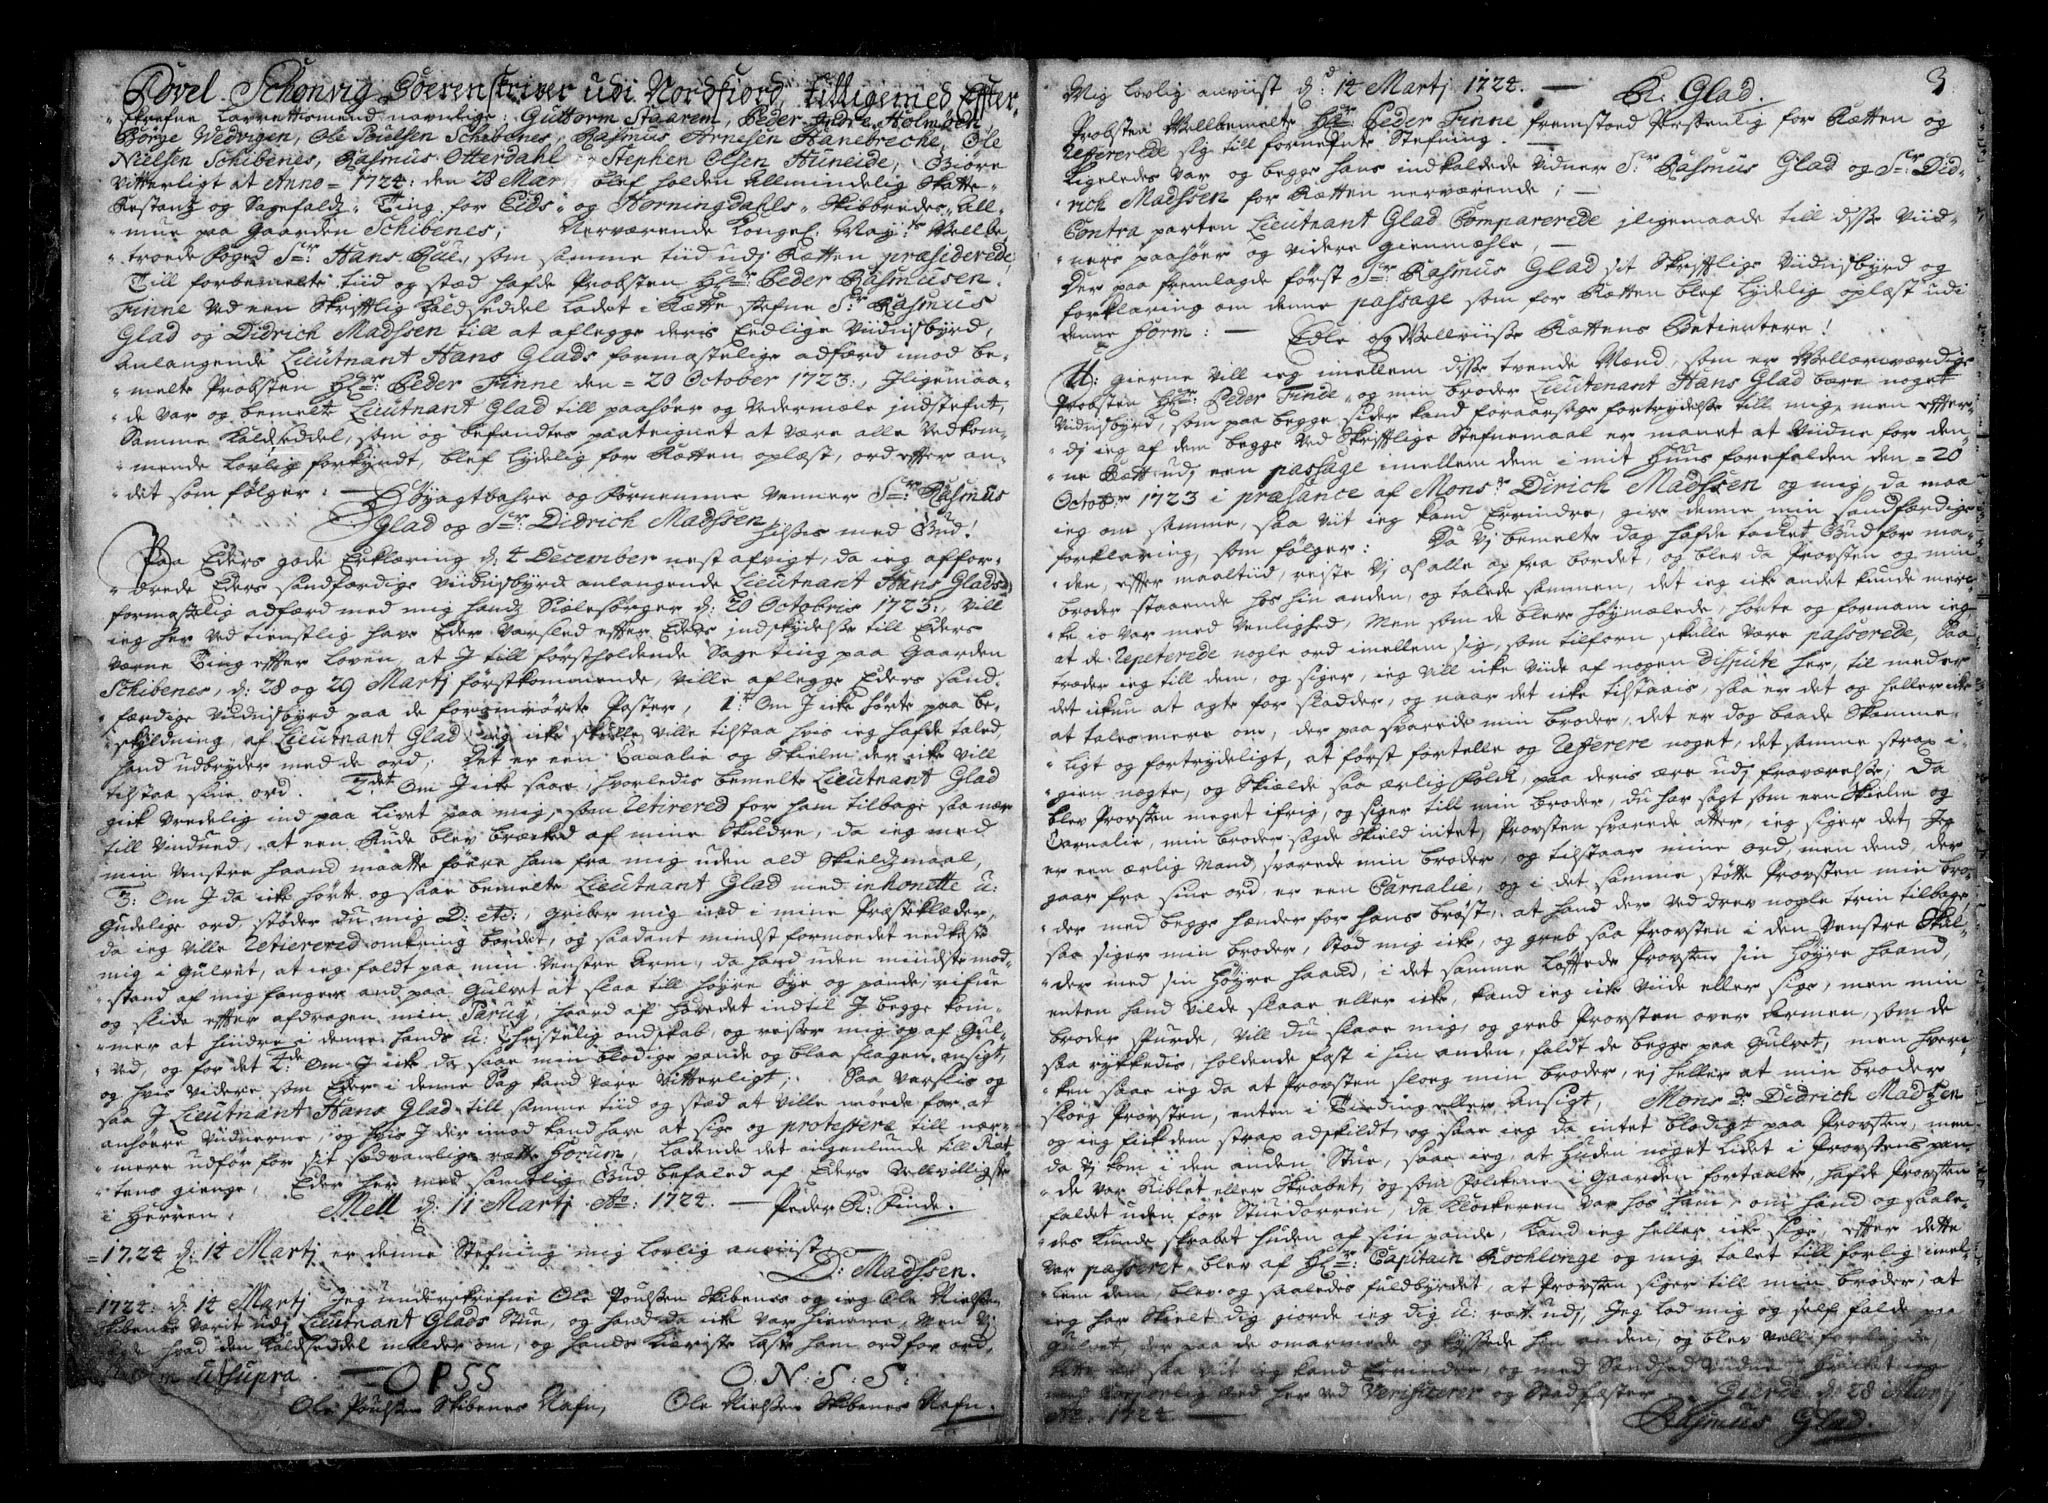 Povel Schonvig Soerenskriver udi Nordfiord, tilligemed Efter-
skrefne Laurettesmend navnlige: Guttorm Staarem, Peder Indre Holmøen
Børge Wedvigen, Ole Poulsen Schibenes, Rasmus Arnesen Hanebreche, Ole
Nielsen Schibenes, Rasmus Otterdahl og Stephen Olsen Huneide, Giøre
vitterligt at Anno 1724: den 28 Martj blef holden Allmindelig Skatte-
Restantz og Sagefaldz-Ting for Eids- og Horningdahls Skibbredes All-
mue paa Gaarden Schibenes; Nerværende Kongel. May:ts Vellbe-
troede Foged Sr: Hans Rue, som samme tiid udj Retten præsiderede,
Till forbemelte tiid og sted hafde Probsten Hr: Peder Rasmusen
Finne ved een Skriftlig Kaldseddel ladet i Rette stefne Sr: Rasmus
Glad og Didrich Madssen till at aflegge deris Eedlige Vidnisbyrd,
Anlangende Lieutnant Hans Glads formastelige adferd imod be-
melte Probsten Hr: Peder Finne den 20 October 1723:, Iligemaa-
de var og bemelte Lieutnant Glad till paahøer og Vedermæle indstefnt,
Samme Kaldseddel, som og befandtes paateignet at være alle Vedkom-
mende lovlig forkyndt, blef lydelig for Retten oplæst, ord effter an-
det som følger:
Høyagtbahre og Fornemme Venner Sr: Rasmus
Glad og Sr: Didrich Madssen hilsis med Gud!
Paa Eders gode Erklæring d: 4 December nest afvigt, da ieg affor-
drede Eders sandferdige Vidnisbyrd anlangende Lieutnant Hans Glads
formastelig adferd med mig hands Siælesørger d: 20 Octobris 1723:, vill
ieg her ved tienstlig have Eder varsled effter Eders indskydelse till Eders
Værne Ting effter loven, at I till førstholdende Sage ting paa Gaarden
Schibenes, d: 28 og 29 Martj førstkommende, ville aflegge Eders sand-
færdige Vidnisbyrd paa de Poster, 1: Om I icke hørte paa be-
skyldning, af Lieutnant Glad, ieg icke skulle ville tilstaa hvis ieg hafde taled,
hand udbryder med de ord; Det er een Canalie og Skielm der icke vill
tilstaa sine ord. 2det Om I icke saae, hvorledis bemelte Lieutnant Glad
gick vredelig ind paa livet paa mig, som retirered for ham tilbage saa nær
till vindued, at een Rude blev brækked af mine Skuldre, da ieg med
min venstre haand maatte føre ham fra mig uden ald Skieldzmaal,
3: Om I da icke hørte og saae bemelte Lieutnant Glad med inhonette u:
gudelige ord, støder du mig D: etc:, griber mig ind i mine Præsteklæder,
da ieg ville retierered omkring bordet, og saadant mindst formoedet nedkaste
mig i Gulvet, at ieg faldt paa min venstre Arm, da hand uden mindste mod-
stand af mig fanger and paa Gulvet at slaa till høyre Øye og pande, rifve
og slide effter afdragen min Paruq, haard af hovedet indtil I begge kom-
mer at hindre i denne hands u: Christelig ondskab, og reiser mig op af Gul-
ved, og for det 4de: Om I icke da saae min blodige pande og blaa slagen ansigt,
og hvis videre som Eder i denne Sag kand være vitterligt; Saa varslis og
saa I Lieutnant Hans Glad till samme tiid og sted at ville møede for at
anhøere Vidnerne, og hvis I der imod kand have at sige og protestere till nær-
mere udfør for sit sædvanlige rette Forum, ladende det ingenlunde till Ret-
tens gienge, Eder her med samtlig Gud befaled af Eders Velvilligste
i Herren, Mell d: 11 Martj Ao: 1724. — Peder R: Finde.
1724 d: 14 Martj er denne Stefning mig lovlig anviist
D: Madssen.
1724: d: 14 Martj Jeg underskrefne Ole Poulsen Skibenes og ieg Ole Nielsen
Skibenes varit udj Lieutnant Glads Stue, og hand da icke var hiemme, men
hvad den Kaldseddel melder om, og hands Kieriste læste ham ord for ord.
ut supra. — OPSS O.N:S:S:
Ole Poulsen Skibenes Nafn, Ole Nielsen Skibenes Nafn.
3
Mig lovlig anviist d: 14 Martj 1724. — R: Glad.
Probsten Vellbemelte Hr: Peder Finne fremstoed Persohnlig for Retten og
refererede sig till fornefnte Stefning. —
Ligeledes var og begge hans indkaldede Vidner Sr: Rasmus Glad og Sr: Did-
rich Madssen for Retten nerværende; —
Contra parten Lieutnant Glad Comparerede iligemaade till disse Vid-
ners paahøer og videre gienmæhle, —
Der paa fremlagde først Sr: Rasmus Glad sit Skriftlige Vidnisbyrd og
forklaring om denne passage som for Retten blef lydelig oplæst udi
denne Form: — Edle og Vellviise Rettens Betientere!
U: gierne vill ieg imellem disse tvende Mænd, som er Vellærværdige
Probsten Hr: Peder Finde, og min broder Lieutenant Hans Glad bære noget
Vidnisbyrd, som paa begge sider kand foraarsage fortrydelse till mig, men effter-
dj ieg af dem begge ved Skriftlige Stefnemaal er manet at Vidne for den-
ne Rett udj een passage imellem dem i mit Huus forefalden den 20
Octobr 1723 i præsance af Monsr Dirich Madssen og mig, da maa
ieg om samme, saa vit ieg kand Erindre, give denne min sandferdige
forklaring, som følger: Da vj bemelte dag hafde tacket Gud for ma-
den, effter maaltiid, reiste vj os alle op fra bordet, og blev da Provsten og min
broder staaende hos hin anden, og talede sammen, det ieg icke andet kunde mer-
ke io var med venlighed, Men som de blev høymælede, hørte og fornam ieg
at de repeterede nogle ord imellem sig, som tilforn skulle være passerede, Saa
træder ieg till dem, og siger, ieg vill icke viide af nogen dispute her, til med er
det ickun at agte for sladder, og naar det icke tilstaais, saa er det og heller icke
at tales mere om, der paa svarede min broder, det er dog baade Skamme-
ligt og fortrydeligt, at først fortelle og referere noget, det samme strax i-
gien negte, og Skielde saa ærlig folck paa deris ære udj fraværelse; Da
blev Provsten meget ifrig, og siger till min broder, du har sagt som een Skielm og
Carnalie, min broder sagde Skield intet, Provsten svarede atter, ieg siger det, Jeg
er een ærlig Mand, svarede min broder, og tilstaar mine ord, men dend, der
gaar fra sine ord, er een Carnalie, og i det samme støtte Provsten min bro-
der med begge hænder for hans brøst, at hand der ved drev nogle trin tilbage,
saa siger min broder, Stød mig icke, og greb saa Provsten i den venstre Skul-
der med sin høyre haand, i det samme løffted Provsten sin høyre haand,
enten hand vilde slaae eller icke, kand ieg icke viide eller sige, men min
broder spurde, vill du slaae mig, og greb Provsten over Armen, som de
saa rykkedis, holdende fast i hin anden, faldt de begge paa Gulvet, men hver-
ken saae ieg da at Provsten sloeg min broder, ej heller at min broder
sloeg Provsten, enten i Tinding eller Ansigt, Monsr: Didrich Madtzen
og ieg fick dem strax adskildt, og saae ieg da intet blodigt paa Provsten, men
da vj kom i den anden Stue, saae ieg, at Huden noget lidet i Provstens pan-
de var Kiblet eller Skrabet, og som Folckene i Gaarden fortaalte, hafde Provsten
faldet uden for Stuedørren, da Klockeren var hos ham, om hand og saale-
des kunde skrabet huden af sin pande, kand ieg heller icke sige, effter dette
var passeret, blev af Hr: Capitain Kochlenge og mig talet till forlig imel-
lem dem, blev og saaledes fuldbyrdet, at Provsten siger till min broder, at
ieg har Skielt dig giorde ieg dig u: rett udj, Jeg lod mig og self falde paa
Gulvet, der paa de omarmede og kyssede hin anden, og blev vell forligede,
dette er saa vit ieg kand Erindre, og med Sandhed Vidne, hvilcket ieg
med Corporlig Eed her ved Verificerer og Stadfæster. Gierde d: 28 Martj
Ao: 1724 — Rasmus Glad.